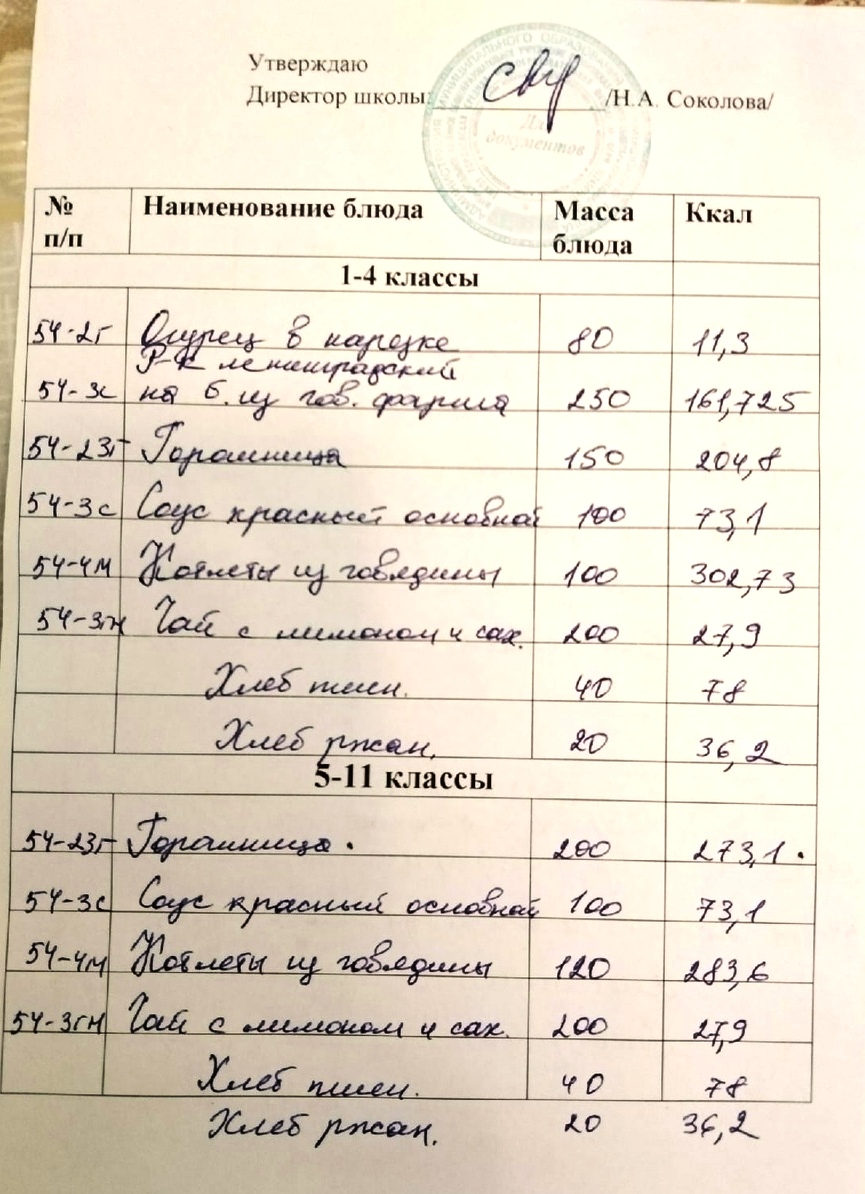 Утверждаю
Директор школы: /Н.А. Соколова/
МУНИЦИПАЛЬНОГО ОБРАЗОВАНИЯ
Для
документов
№ п/п Наименование блюда Масса блюда Ккал
1-4 классы
54-2г Огурец в нарезке 80 11,3
Р-к ленинградский
54-3с на б. из гов. фарша 250 161,725
54-23г Горошница 150 204,8
54-3с Соус красный основной 100 73,1
54-4м Котлеты из говядины 100 302,73
54-3гн Чай с лимоном и сах. 200 27,9
Хлеб пшен. 40 78
Хлеб ржан. 20 36,2
5-11 классы
54-23г Горошница. 200 273,1.
54-3с Соус красный основной 100 73,1
54-4м Котлеты из говядины 120 283,6
54-3гн Чай с лимоном и сах. 200 27,9
Хлеб пшен. 40 78
Хлеб ржан. 20 36,2